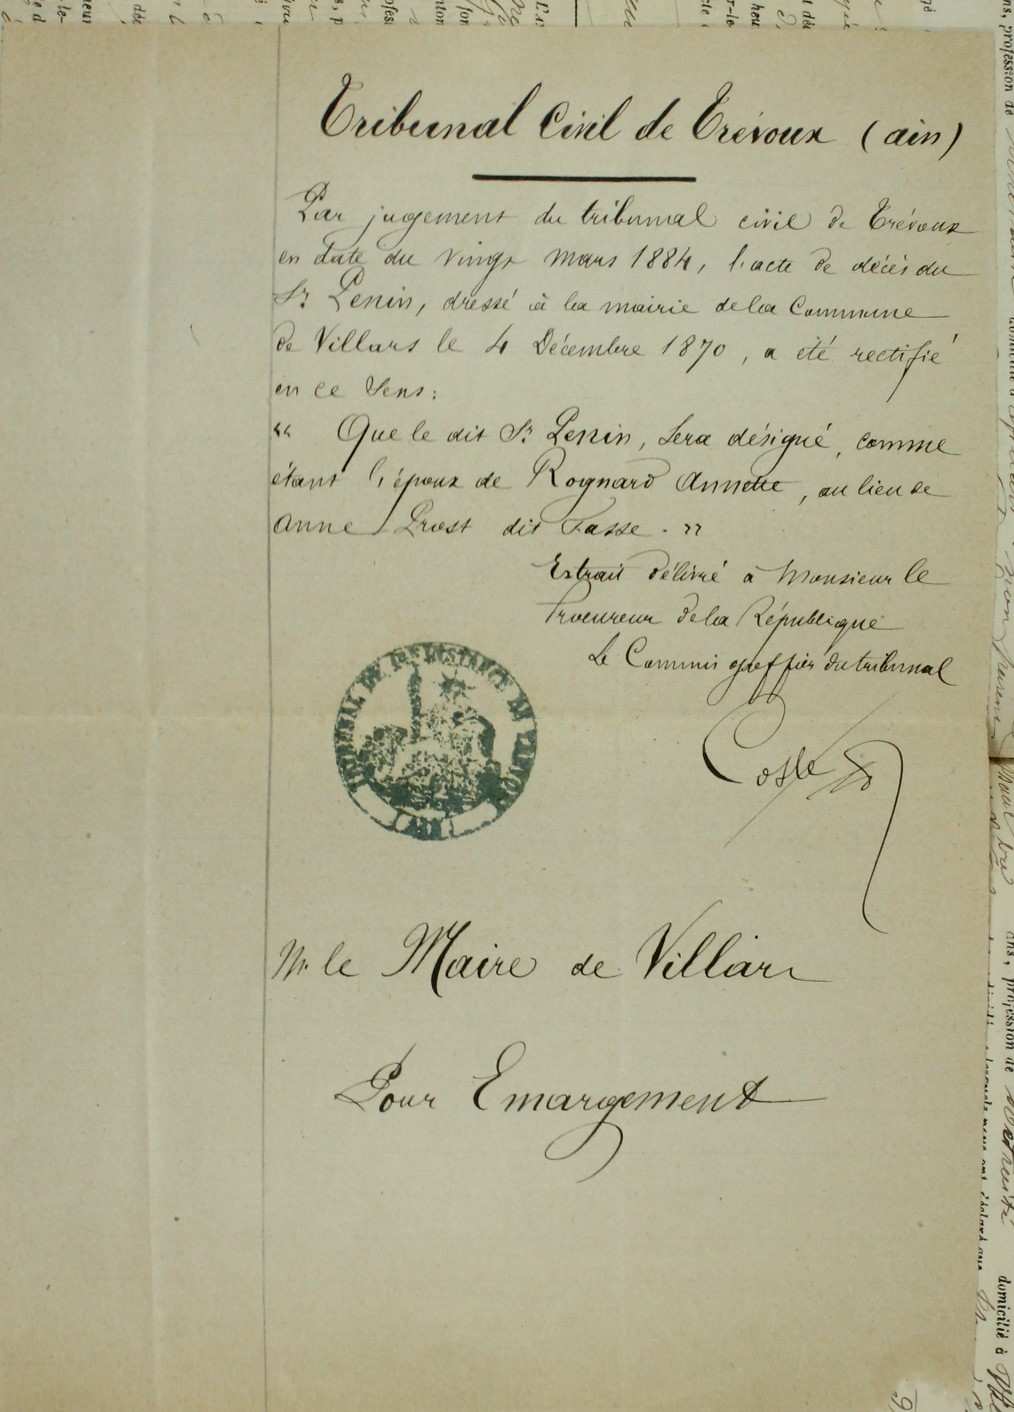 Tribunal Civil de Trévoux (ain)
Par jugement du tribunal civil de Trévoux
en date du vingt mars 1884, l'acte de décès du
Sr Penin, dressé à la mairie de la Commune
de Villars le 4 Décembre 1870, a été rectifié
en ce sens:
" Que le dit Sr Penin, sera désigné, comme
étant l'époux de Rognard Annette, au lieu de
Anne Prost dit Fasse. "
Extrait délivré à Monsieur le
Procureur de la République
Le Commis greffier du tribunal
Coste
TRIBUNAL DE 1ère INSTANCE DE
(AIN)
Mr le Maire de Villars
Pour Emargement
ans, profession de
domicilié à